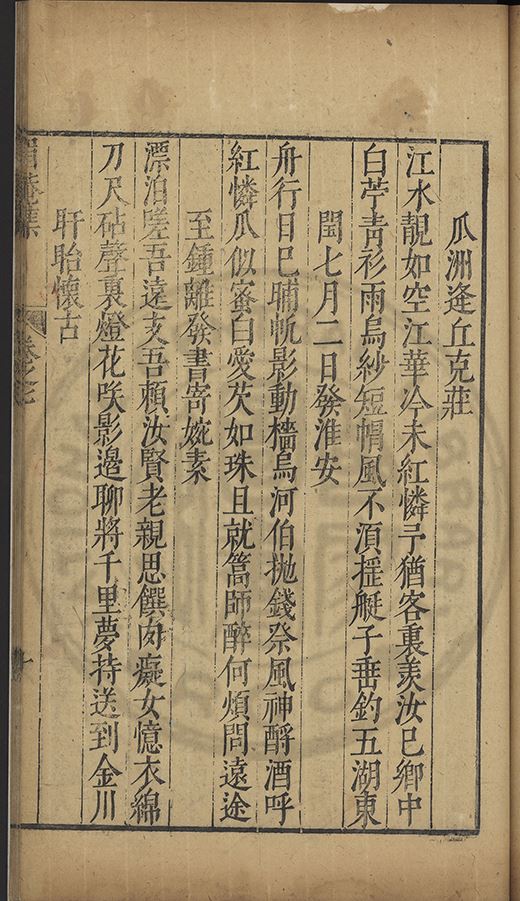 瓜洲逢丘克莊
江水靚如空江華冷未紅憐予猶客裏羨汝已鄉中
白苧青衫雨烏紗短帽風不湏摇艇子垂釣五湖東
閏七月二日發淮安
舟行日巳晡帆影動檣烏河伯抛錢祭風神酹酒呼
紅憐瓜似蜜白愛芡如珠且就篙師醉何煩問遠途
至鍾離發書寄婉素
漂泊嗟吾遠支吾頼汝賢老親思饌肉癡女憶衣綿
刀尺砧聲裏燈花咲影邊聊將千里夢持送到金川
盱眙懷古